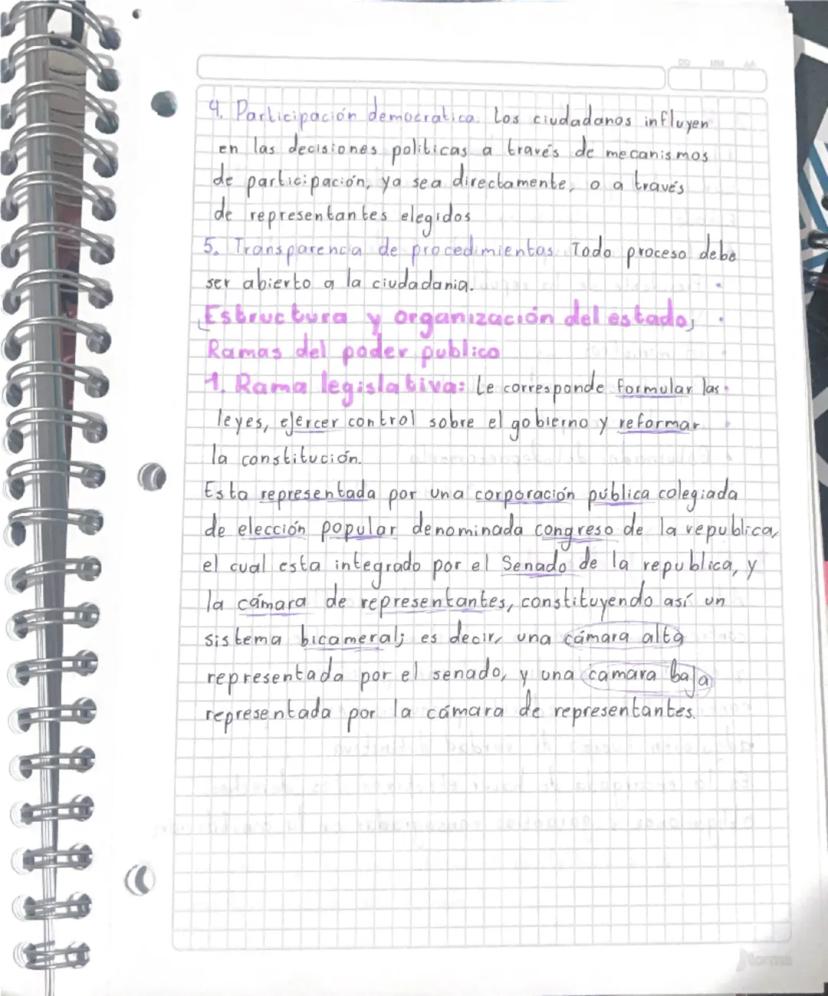 DD MM AA
4. Participación democratica. Los ciudadanos influyen
en las decisiones politicas a través de mecanismos
de participación, ya sea directamente, o a través
de representantes elegidos
5. Transparencia de procedimientos. Todo proceso debe
ser abierto a la ciudadania.
Estructura y organización del estado,
Ramas del poder publico
1. Rama legislativa: Le corresponde formular las
leyes, ejercer control sobre el gobierno y reformar
la constitución.
Esta representada por una corporación pública colegiada
de elección popular denominada congreso de la republica,
el cual esta integrado por el Senado de la republica, y
la cámara de representantes, constituyendo así un
sistema bicameral; es decir, una cámara alta
representada por el senado, y una camara baja
representada por la cámara de representantes.
norma